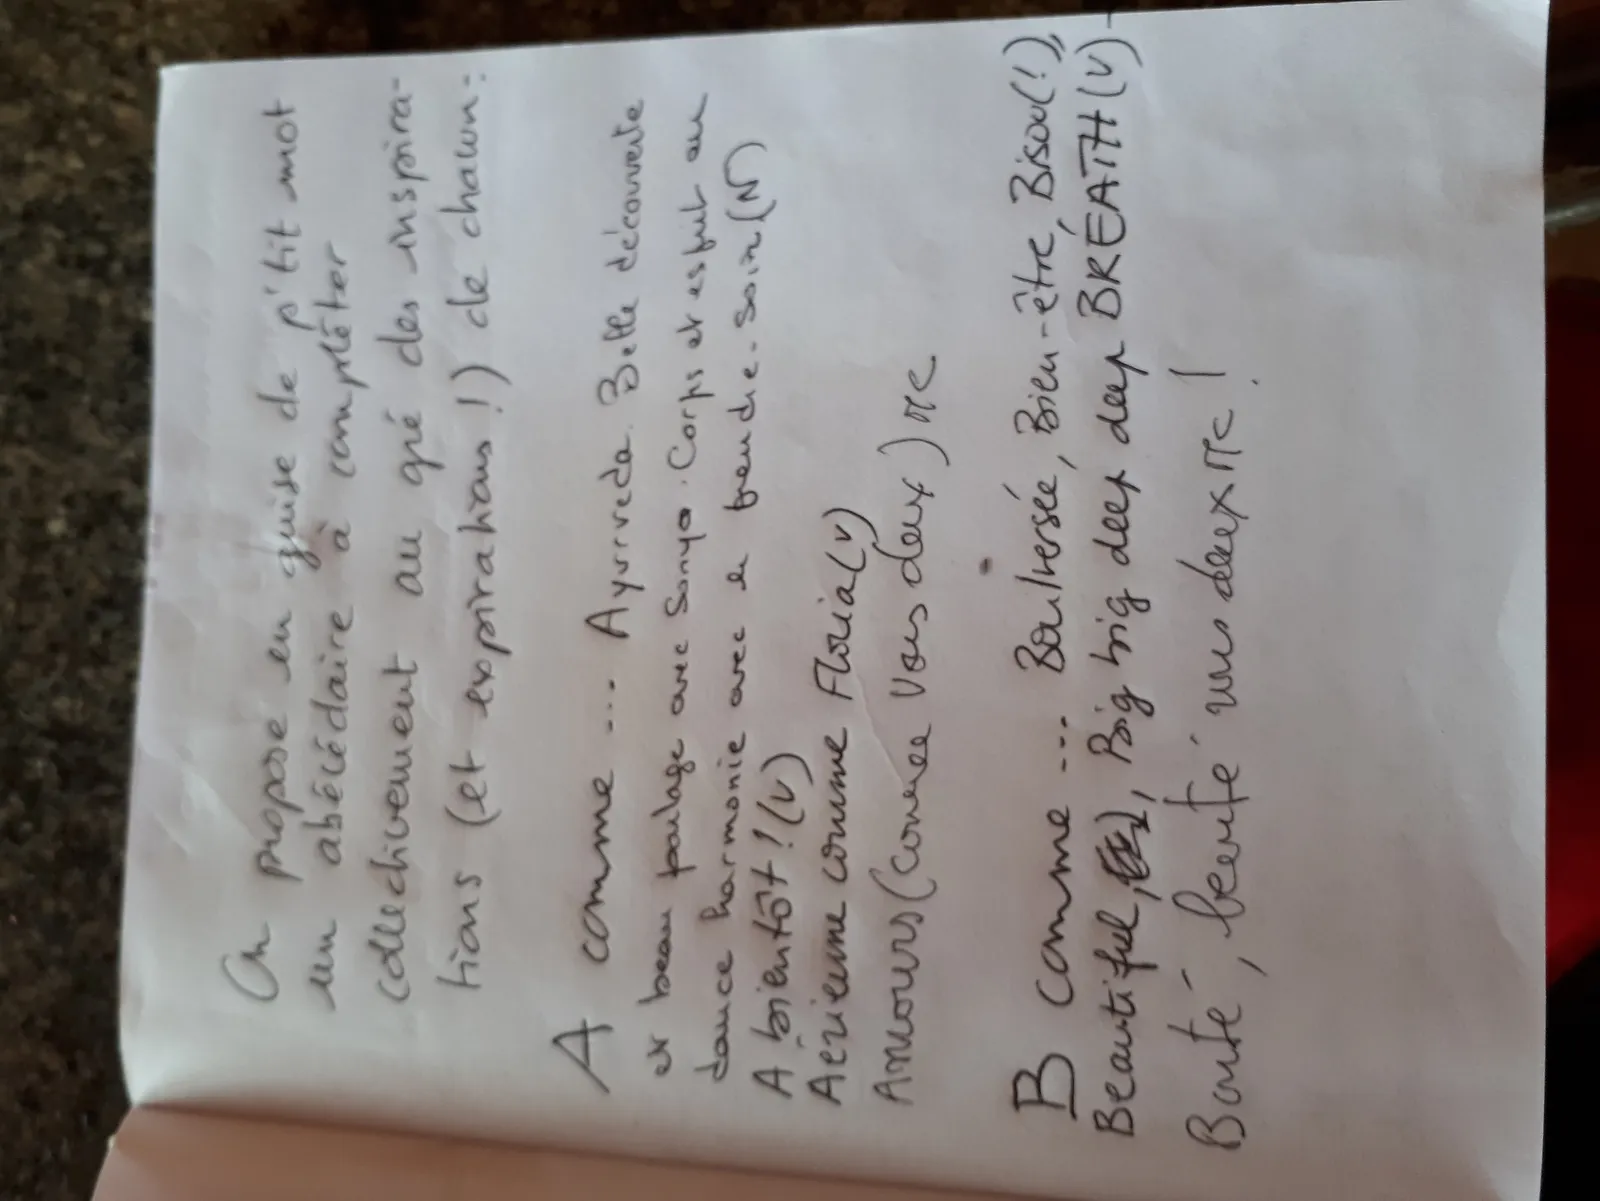 On propose en guise de p'tit mot
un abécédaire à compléter
collectivement au gré des inspira-
tions (et expirations !) de chacun :
A comme ... Ayurveda. Belle découverte
et beau partage avec Sonya. Corps et esprit en
douce harmonie avec le prendre-soin (N)
A bientôt ! (V)
Aérienne comme Floria (V)
Amours (comme vous deux) MC
B comme ... Boulversée, Bien-être, Bisou (!),
Beautiful, Big big deep deep BREATH (V) -
Bonté, beauté vous deux MC !